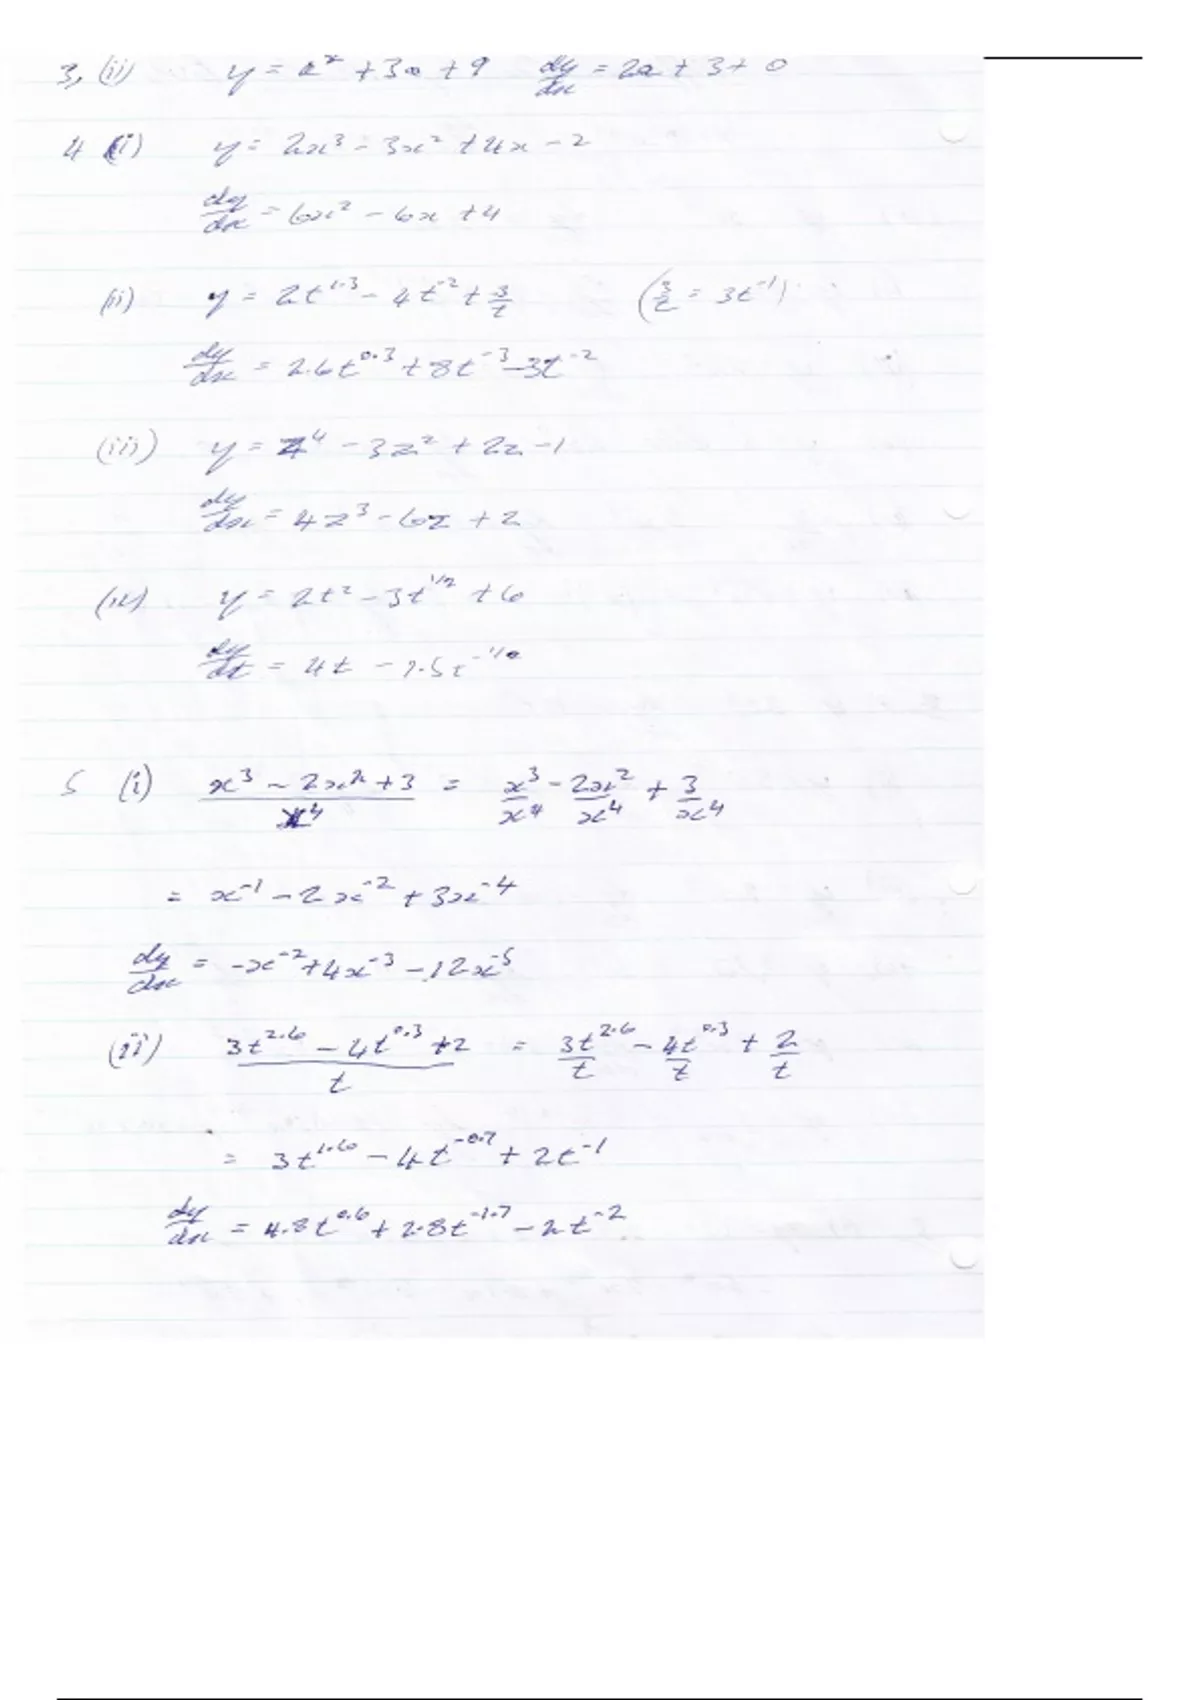 3, (ii) y = a² + 3a + 9 dy/dx = 2a + 3 + 0
4 (i) y = 2x³ - 3x² + 4x - 2
dy/dx = 6x² - 6x + 4
(ii) y = 2t^1.3 - 4t^-2 + 3/t (3/t = 3t^-1)
dy/dx = 2.6t^0.3 + 8t^-3 - 3t^-2
(iii) y = z⁴ - 3z² + 2z - 1
dy/dx = 4z³ - 6z + 2
(iv) y = 2t² - 3t^1/2 + 6
dy/dt = 4t - 1.5t^-1/2
5 (i) (x³ - 2x² + 3)/x⁴ = x³/x⁴ - 2x²/x⁴ + 3/x⁴
= x^-1 - 2x^-2 + 3x^-4
dy/dx = -x^-2 + 4x^-3 - 12x^-5
(ii) (3t^2.6 - 4t^0.3 + 2)/t = 3t^2.6/t - 4t^0.3/t + 2/t
= 3t^1.6 - 4t^-0.7 + 2t^-1
dy/dx = 4.8t^0.6 + 2.8t^-1.7 - 2t^-2